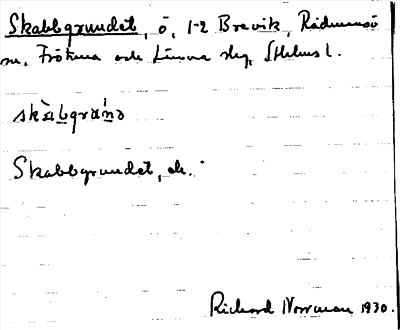 Skabbgrundet, ö, 1-2 Brevik, Rådmansö
sn, Frötuna och Länna slg, Sthlms l.
skàbgrán̲ə
Skabbgrundet, ek.
Richard Norrman 1930.